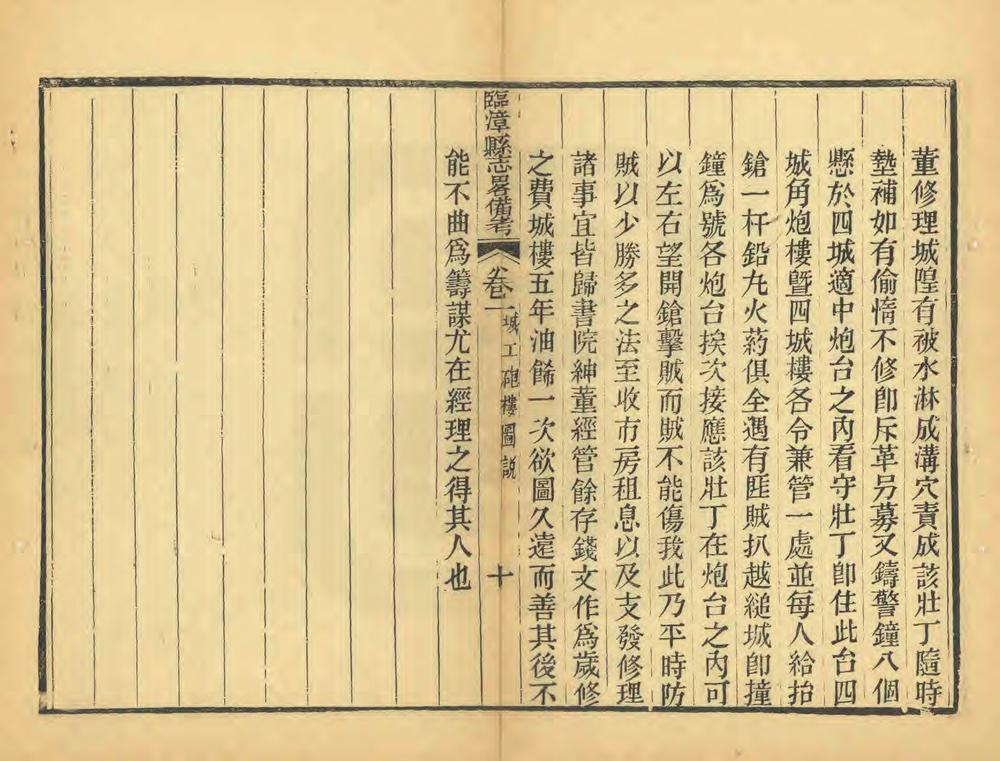 董修理城隍有被水淋成溝穴責成該壯丁隨時
墊補如有偷惰不修卽斥革另募又鑄警鐘八個
懸於四城適中炮台之內看守壯丁卽住此台四
城角炮樓曁四城樓各令兼管一處並每人給抬
鎗一杆鉛丸火葯俱全遇有匪賊扒越縋城卽撞
鐘爲號各炮台挨次接應該壯丁在炮台之內可
以左右望開鎗擊賊而賊不能傷我此乃平時防
賊以少勝多之法至收市房租息以及支發修理
諸事宜皆歸書院紳董經管餘存錢文作爲歲修
之費城樓五年油餙一次欲圖久遠而善其後不
臨漳縣志畧備考 卷一 城工砲樓圖説 十
能不曲爲籌謀尤在經理之得其人也